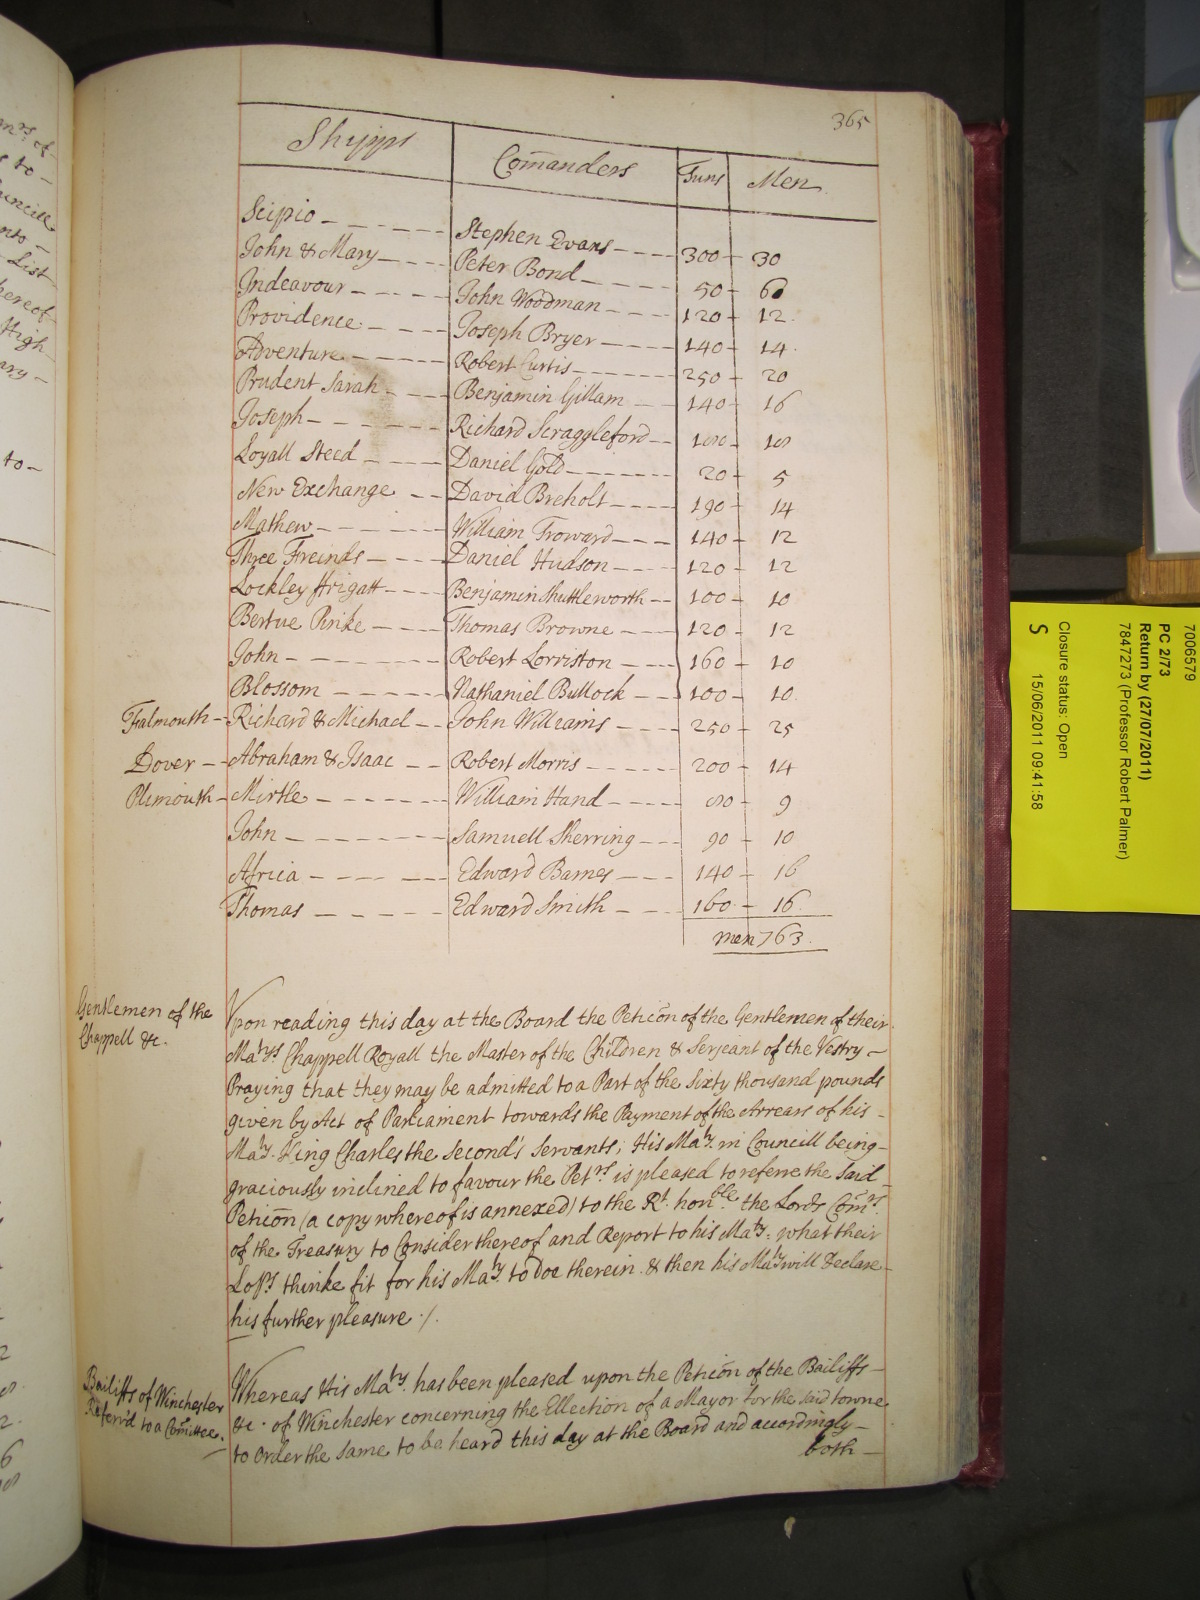 365
Shipps Comanders Tuns Men
Scipio Stephen Evans 300 30
John & Mary Peter Bond 50 6
Indeavour John Woodman 120 12
Providence Joseph Bryer 140 14
Adventure Robert Curtis 250 20
Prudent Sarah Benjamin Gillam 140 16
Joseph Richard Scraggleford 100 10
Loyall Steed Daniel Gold 20 5
New Exchange David Breholt 190 14
Mathew William Froward 140 12
Three Freinds Daniel Hudson 120 12
Lockley ffrigatt Benjamin Shuttleworth 100 10
Bertue Pinke Thomas Browne 120 12
John Robert Lorriston 160 10
Blossom Nathaniel Bullock 100 10
Falmouth Richard & Michael John Williams 250 25
Dover Abraham & Isaac Robert Morris 200 14
Plimouth Mirtle William Hand 80 9
John Samuell Sherring 90 10
Africa Edward Barnes 140 16
Thomas Edward Smith 160 16
men 763
Gentlemen of the
Chappell &c.
Upon reading this day at the Board the Peticōn of the Gentlemen of their
Matys Chappell Royall the Master of the Children & Serjeant of the Vestry
Praying that they may be admitted to a Part of the Sixty thousand pounds
given by Act of Parliament towards the Payment of the Arrears of his
Maty King Charles the Second's Servants, His Maty in Councill being
graciously inclined to favour the Petrs is pleased to referre the Said
Peticōn (a copy whereof is annexed) to the Rt. honble the Lords Comrs
of the Treasury to Consider thereof and Report to his Maty what their
Lopps thinke fit for his Maty to Doe therein & then his Maty will Declare
his further pleasure ./.
Bailiffs of Winchester
Referr'd to a Comittee.
Whereas His Maty has been pleased upon the Peticōn of the Bailiffs
&c. of Winchester concerning the Ellection of a Mayor for the said towne
to Order the Same to be heard this day at the Board and accordingly
both
7006579
PC 2/73
Return by (27/07/2011)
7847273 (Professor Robert Palmer)
Closure status: Open
S 15/06/2011 09:41:58